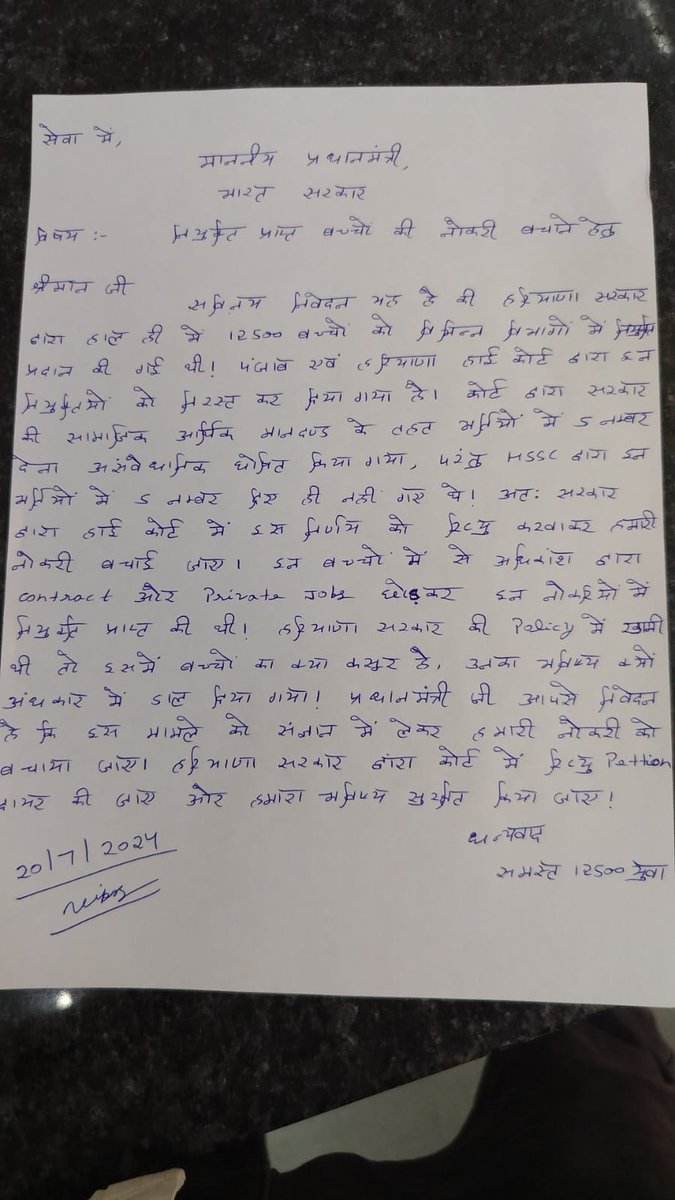 सेवा में,
माननीय प्रधानमंत्री,
भारत सरकार
विषय :- नियुक्ति प्राप्त बच्चों की नोकरी बचाने हेतु
श्रीमान जी
सविनय निवेदन यह है की हरियाणा सरकार
द्वारा हाल ही में 12500 बच्चों को विभिन्न विभागों में नियुक्ति
प्रदान की गई थी! पंजाब एवं हरियाणा हाई कोर्ट द्वारा इन
नियुक्तियों को निरस्त कर दिया गया है। कोर्ट द्वारा सरकार
की सामाजिक आर्थिक मानदण्ड के तहत भर्तियों में 5 नम्बर
देना असंवैधानिक घोषित किया गया, परंतु HSSC द्वारा इन
भर्तियों में 5 नम्बर दिए ही नहीं गए थे! अत: सरकार
द्वारा हाई कोर्ट में इस निर्णय को रिव्यु करवाकर हमारी
नोकरी बचाई जाए। इन बच्चों में से अधिकांश द्वारा
contract और Private Jobs छोड़कर इन नोकरियों में
नियुक्ति प्राप्त की थी! हरियाणा सरकार की Policy में खामी
थी तो इसमें बच्चों का क्या कसूर है, उनका भविष्य क्यों
अंधकार में डाल दिया गया! प्रधानमंत्री जी आपसे निवेदन
है कि इस मामले को संज्ञान में लेकर हमारी नोकरी को
बचाया जाए। हरियाणा सरकार द्वारा कोर्ट में रिव्यु Pettion
दायर की जाए और हमारा भविष्य सुरक्षित किया जाए!
धन्यवाद
समस्त 12500 युवा
20/7/2024